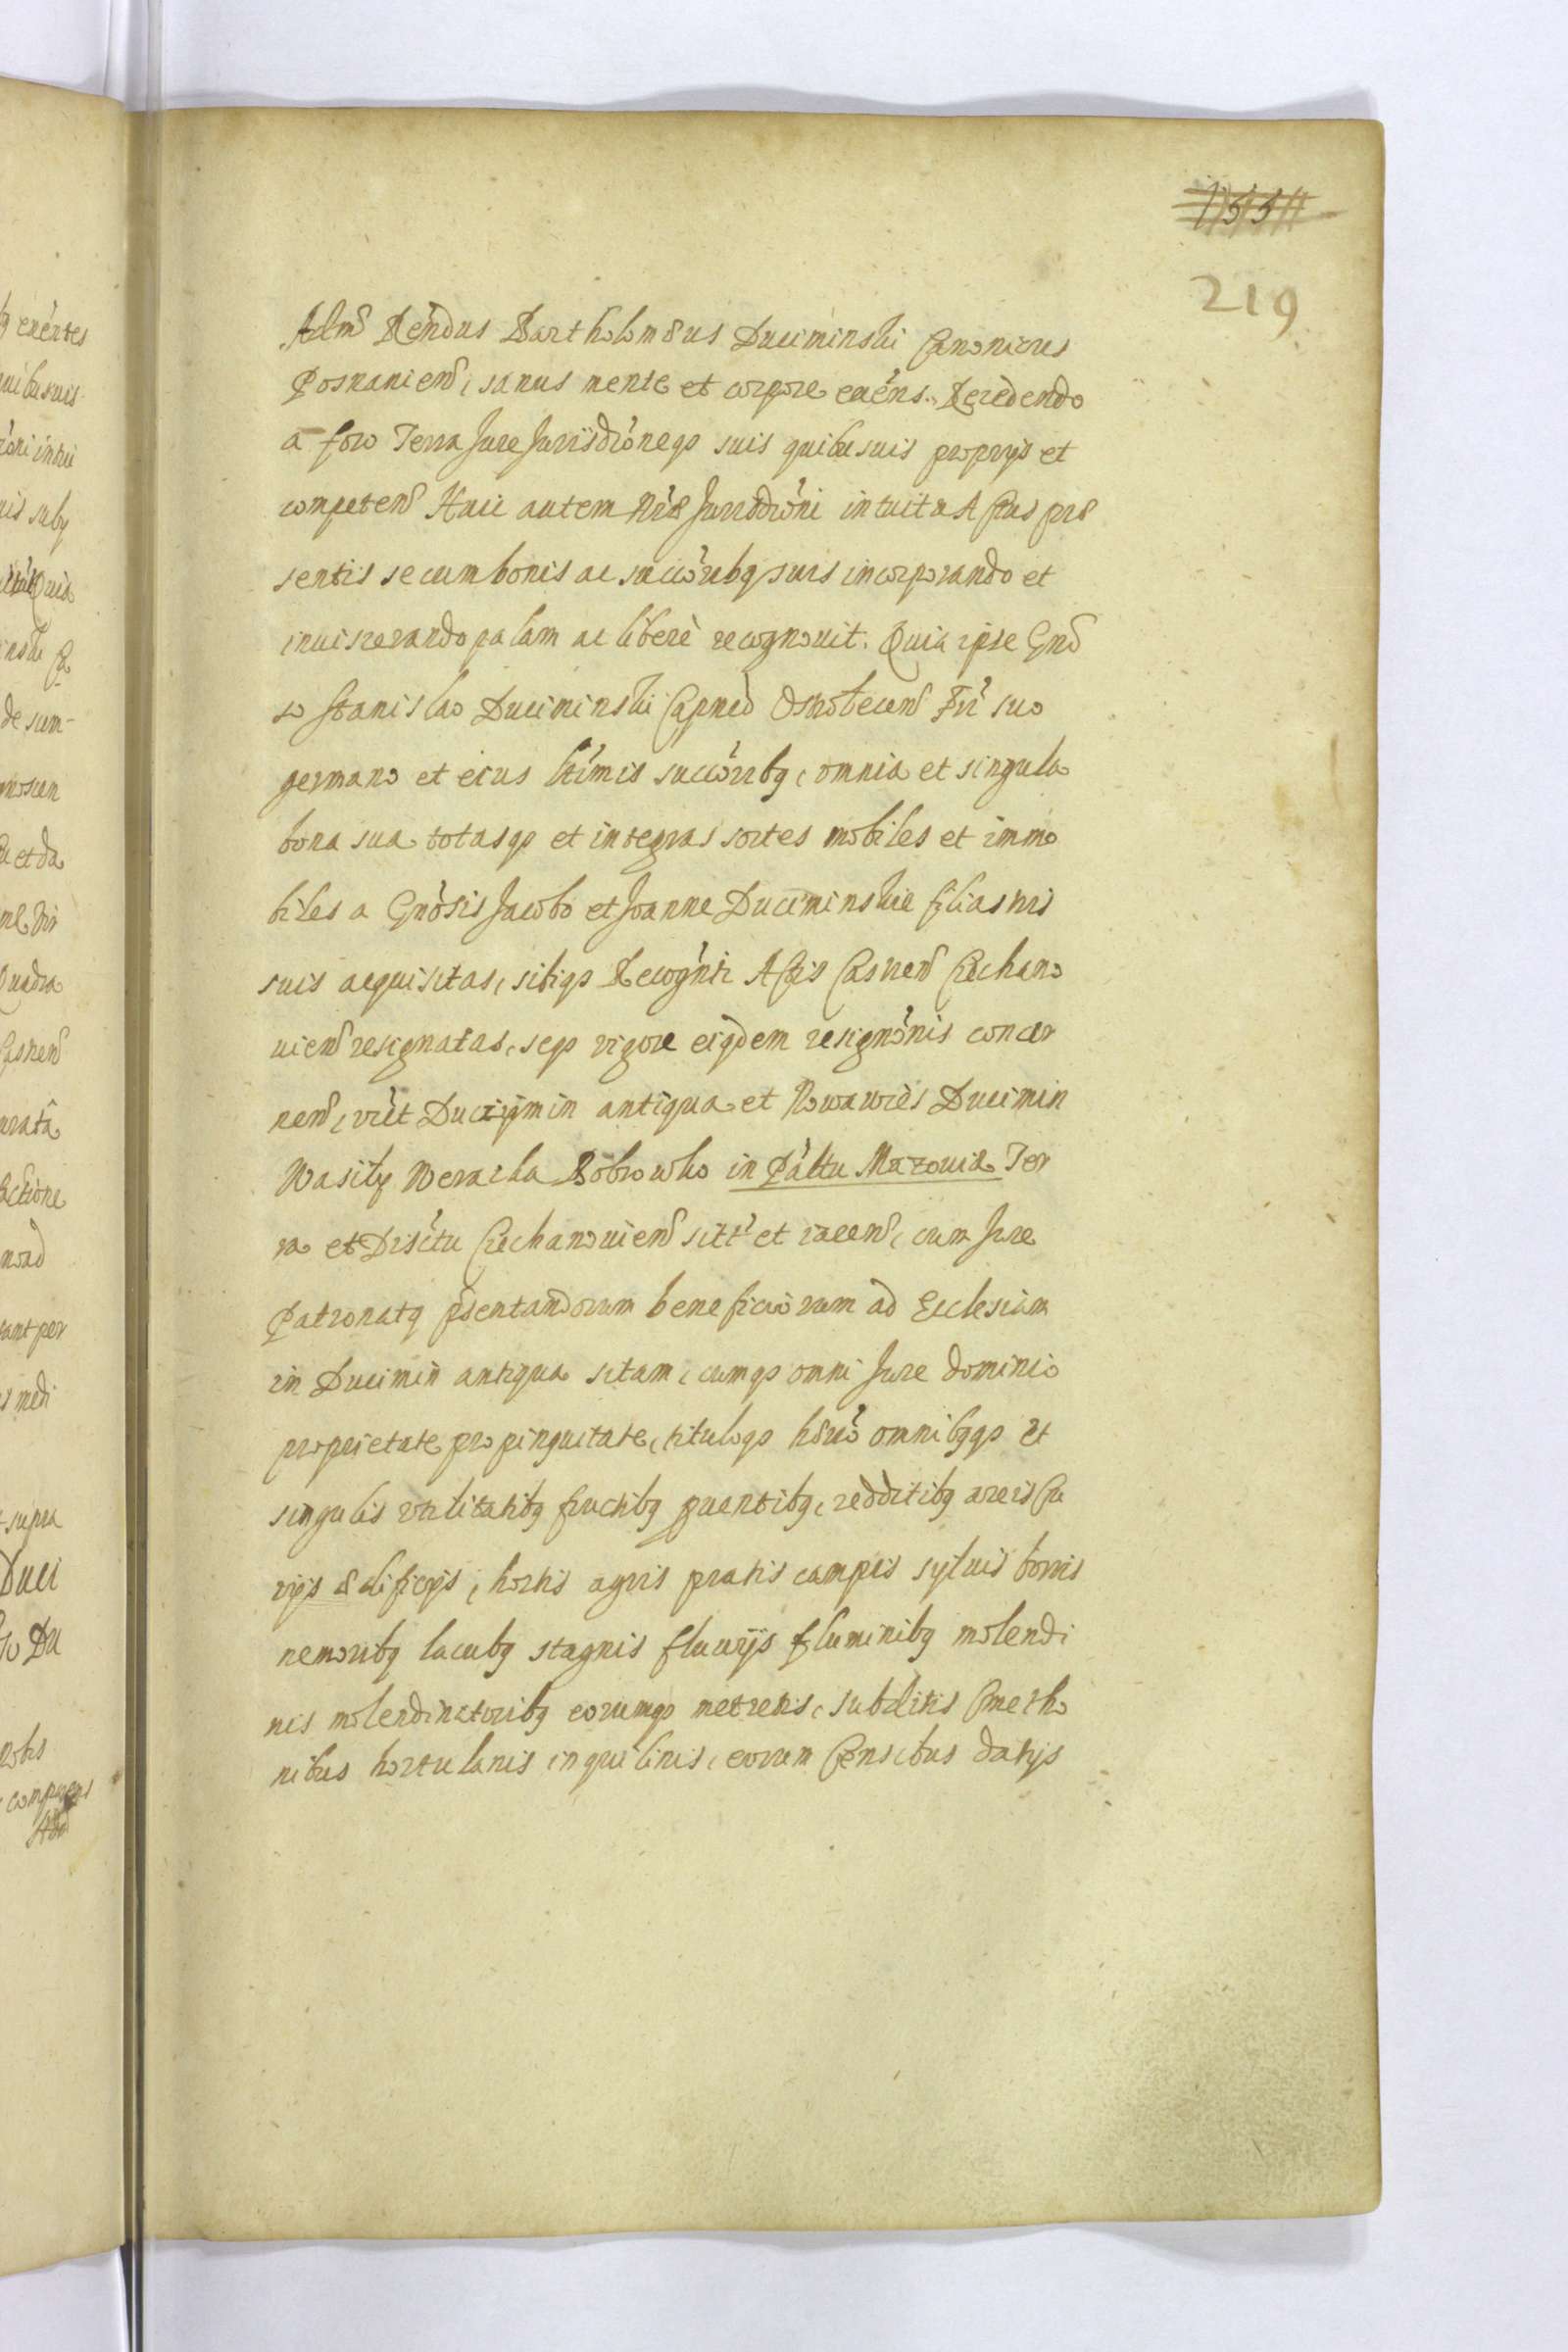 155
219
Adm Rendus Bartholomeus Duciminski Canonicus
Posnanien, sanus mente et corpore exens. Recedendo
a foro Terra Jure Jurisdioneqs suis quibusuis proprijs et
competen Huic autem Nrae Jurisdioni intuitu Actus prae
sentis se cum bonis ac succoribq suis incorporando et
inuiscerando palam ac liberè recognouit. Quia ipse Gno
so Stanislao Duciminski Capneo Osthotecen Fri suo
germano et eius ltimis succoribq, omnia et singula
bona sua totasqs et integras sortes mobiles et immo
biles a Gnosis Jacobo et Joanne Duciminskie filiastris
suis acquisitas, sibiqs Recognit Actis Casren Ciechano
uien resignatas, seqs vigore eiqdem resignonis concer
nen, vict Duczymin antiqua et Nowawies Ducimin
Wasily Weraczka Bobrowko in Paltu Mazouia Ter
ra et Disctu Ciechanouien sitt et iacen, cum Jure
Patronatq psentandorum beneficiorum ad Ecclesiam
in Ducimin antiqua sitam, cumqs omni Jure dominio
proprietate propinquitate, tituloqs haerio omnibqqs et
singulis vtilitatibq fructibq puentibq, redditibq areis Cu
rijs aedificijs, hortis agris pratis campis syluis borris
nemoribq lacubq stagnis fluuijs fluminibq molendi
nis molendinatoribq eorumqs metretis, subditis Cmetho
nibus hortulanis inquilinis, eorum Censibus datijs